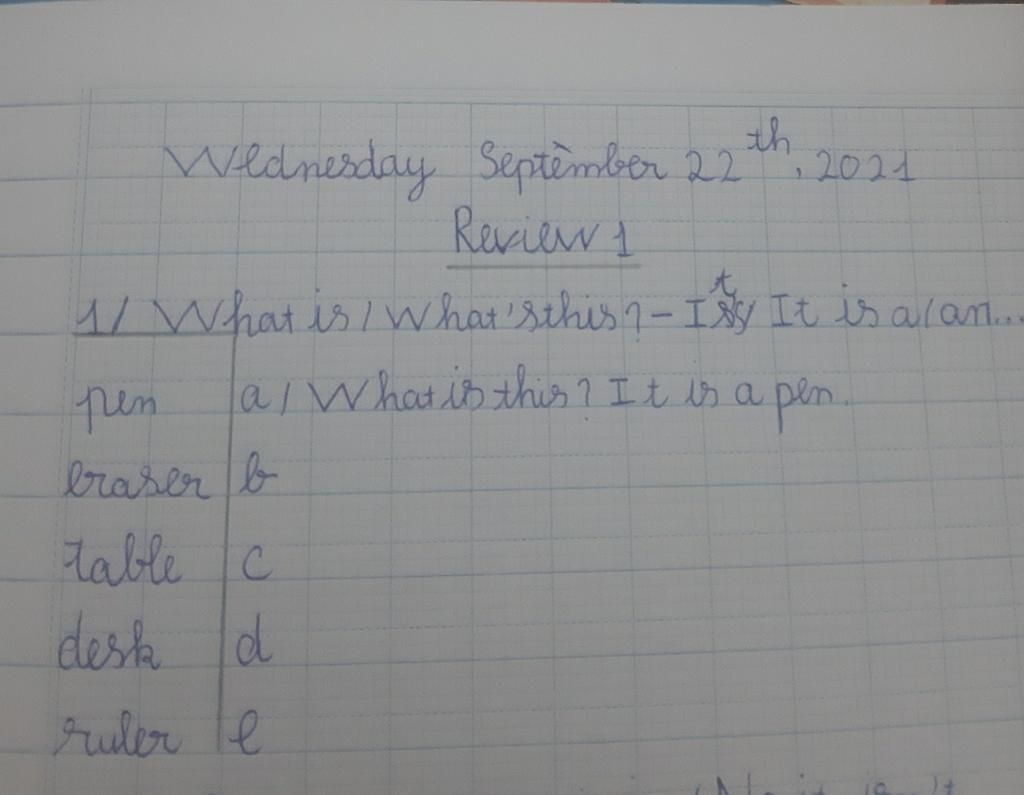 Wednesday September 22th, 2021
Review 1
1/ What is / What's this? - It's / It is a/an...
pen a/ What is this? It is a pen.
eraser b
table c
desk d
ruler e